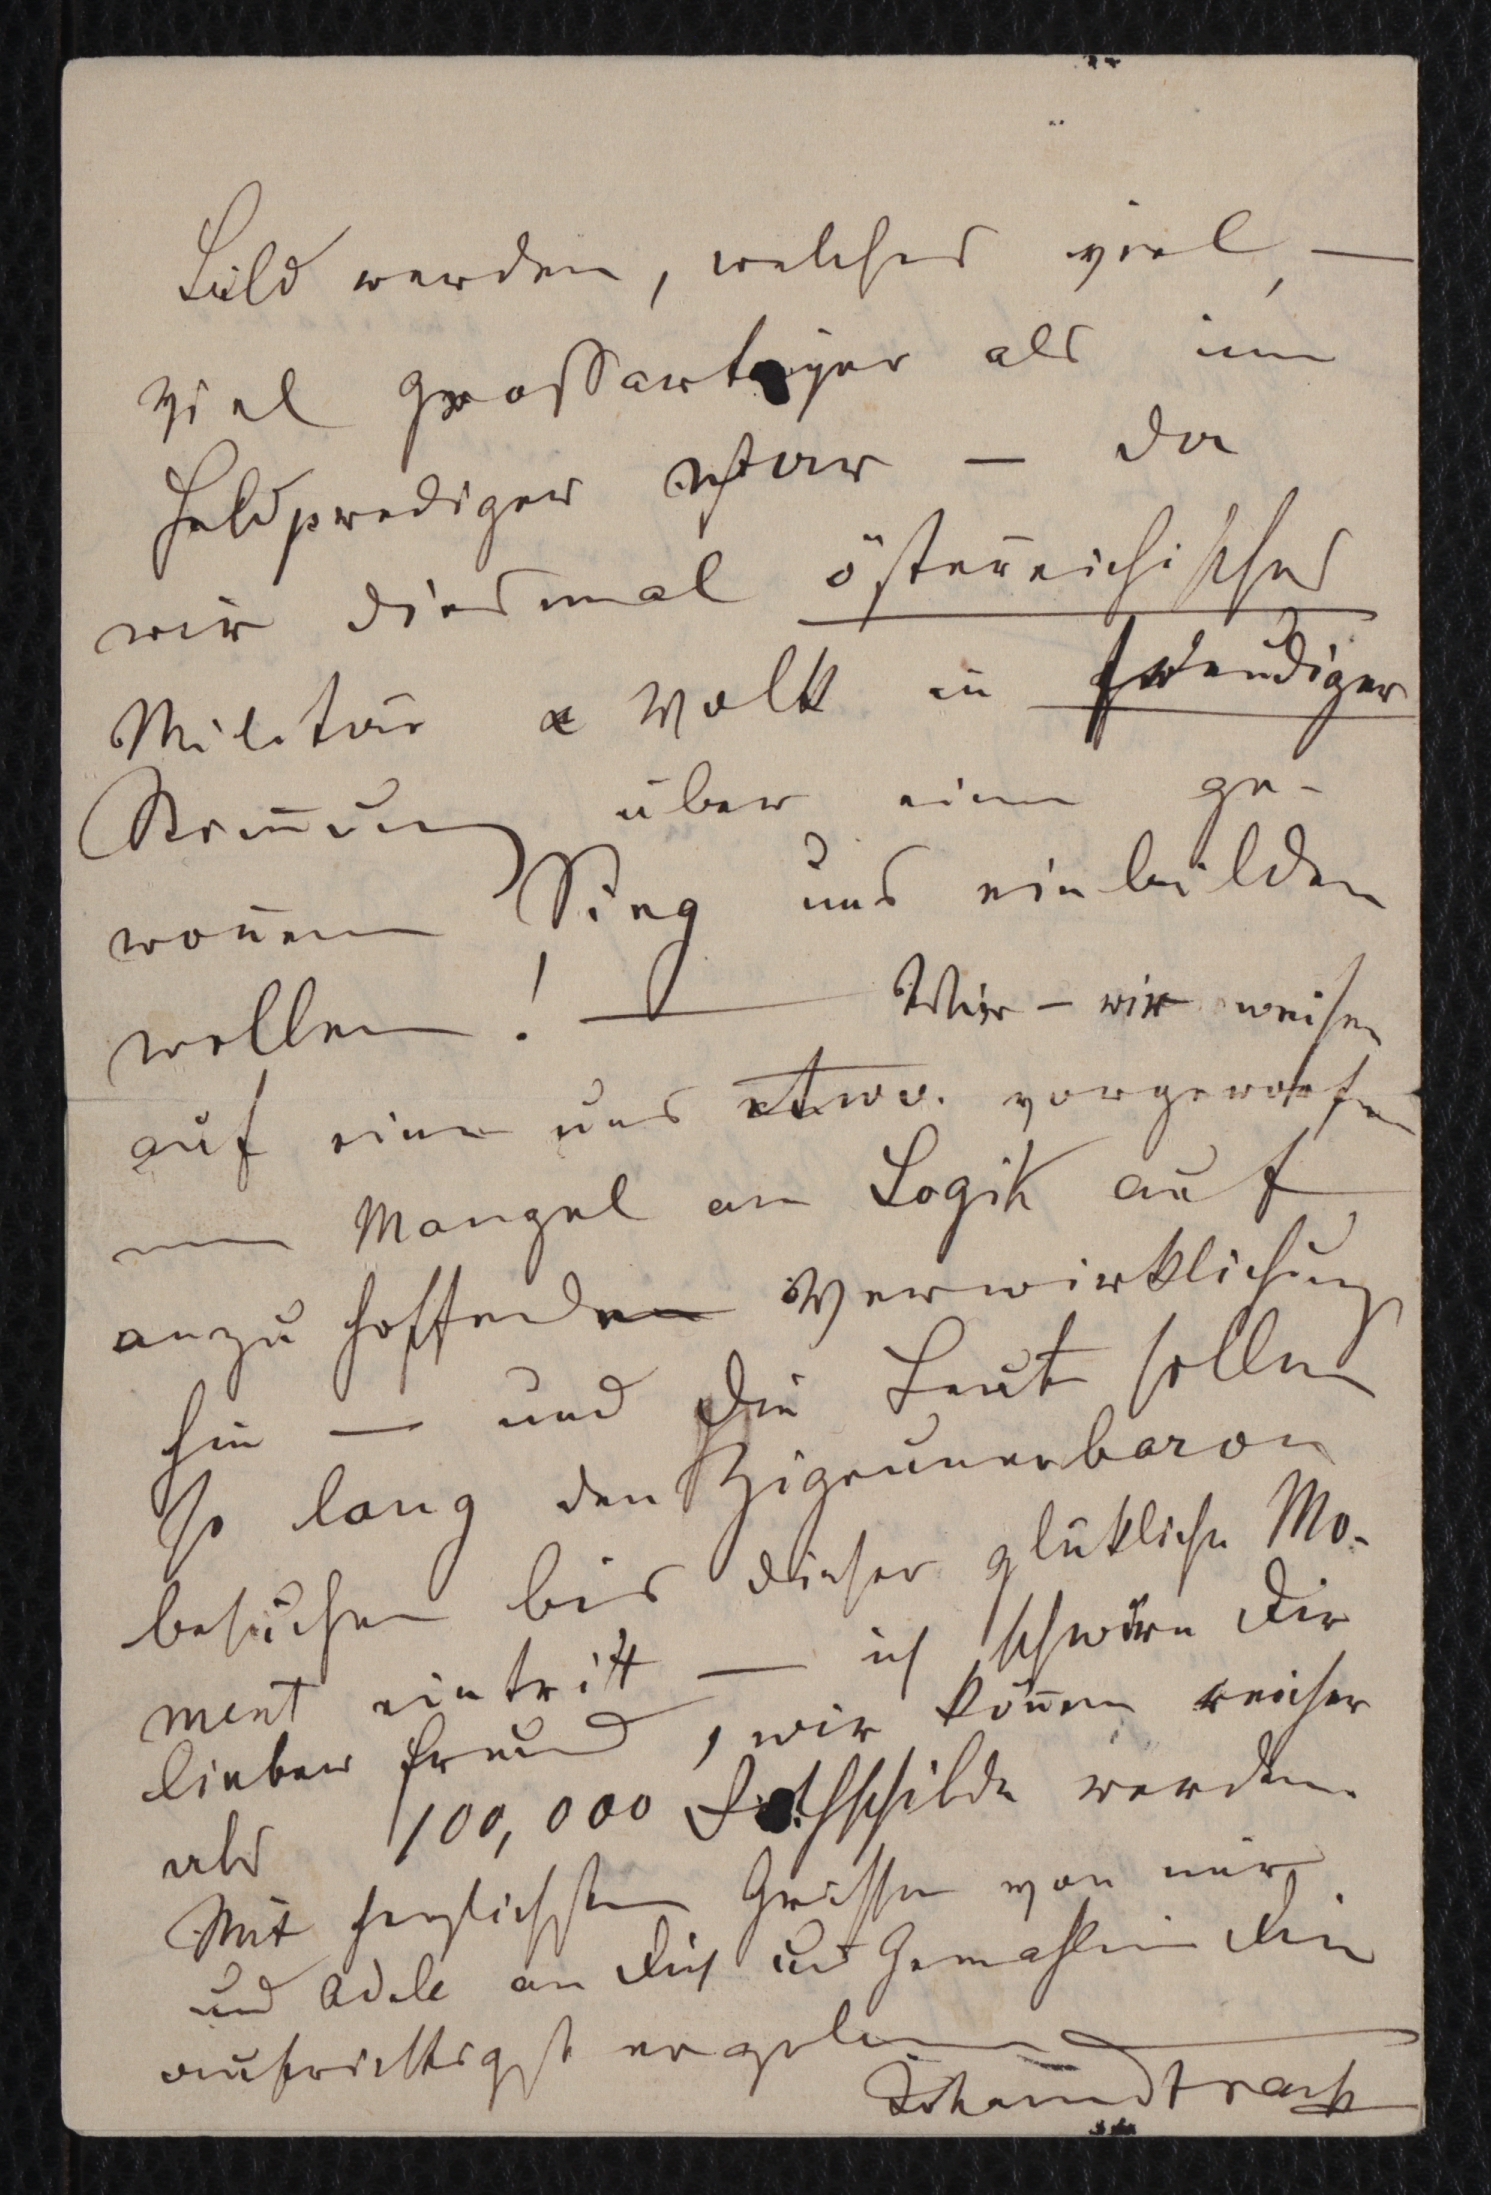 Bild werden, welches viel, —
viel grossartiger als im
Feldprediger war — da
wir diesmal österreichisches
Militär & Volk in freudiger
Stim̅ung über einen ge-
won̅enen Sieg uns einbilden
wollen! — Wir — wir weisen
auf einen uns etwa. vorgeworfe
nen Mangel an Logik auf
anzu hoffenden Verwirklichung
hin — und die Leute sollen
so lang den Zigeunerbaron
besuchen bis dieser glükliche Mo-
ment eintritt — ich schwöre Dir
lieber Freund, wir kön̅en reicher
als 100,000 Rothschilde werden.
Mit herzlichsten Grüssen von mir
und Adele an Dich und Gemahlin Dein
aufrichtigst ergebener
JohannStrauss